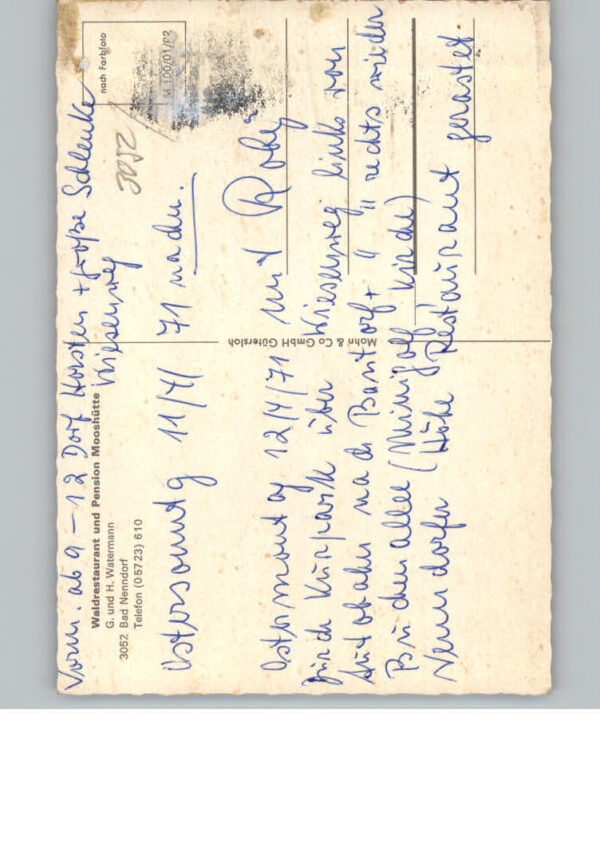 Vorm. ab 9 – 12 Dorf Horsten + große Schleuke
Wiesenweg
Waldrestaurant und Pension Mooshütte
G. und H. Watermann
3052 Bad Nenndorf
Telefon (05723) 610
nach Farbfoto
3052
Ostersonntg 11/4/ 71 nachm.
Mohn & Co GmbH Gütersloh
Ostermontag 12/4/71 mit
durch Kurpark über Wiesenweg links von
Autobahn nach Bantorf + " " rechts wieder
Buchenallee (Minigolf
Nenndorfer Höhe Restaurant gerastet